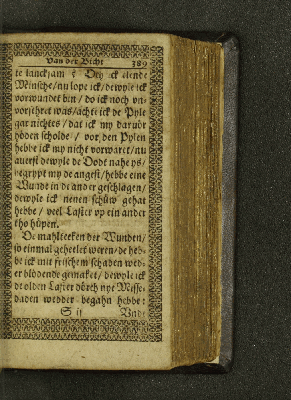 Van der Bicht 389
te lanckſam? Och ick elende
Minſche/ nu lope ick/ dewyle ick
vorwundet bin/ do ick noch vn-
vorſehret was/ achte ick de Pyle
gar nichtes/ dat ick my darvör
höden ſcholde/ vor den Pylen
hebbe ick my nicht vorwaret/ nu
auerſt dewyle de Dodt nahe ys/
begrypt my de angeſt/ hebbe eine
Wunde in de ander geſchlagen/
dewyle ick nenen ſchüw gehat
hebbe/ veel Laſter vp ein ander
tho hüpen.
De mahlteeken der Wunden/
ſo einmal geheelet weren/ de heb-
be ick mit friſchem ſchaden wed-
er blödende gemaket/ dewyle ick
de olden Laſter dörch nye Miſſe-
daden wedder begahn hebbe:
S ij Vnde